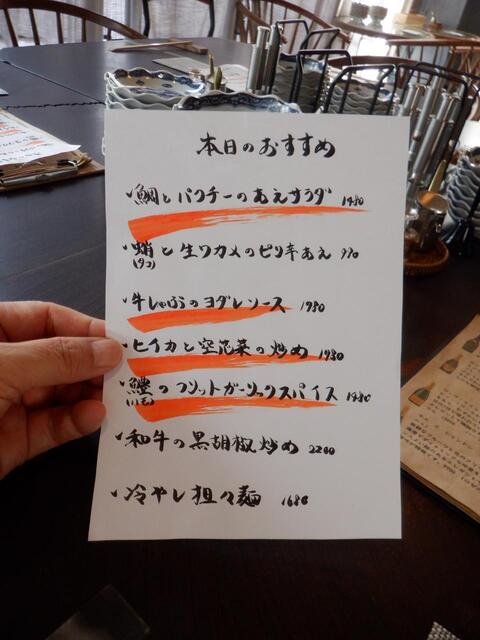 本日のおすすめ
・鯛とパクチーのあえサラダ 1480
・蛸と生ワカメのピリ辛あえ 990
(タコ)
・牛しゃぶのヨダレソース 1980
・ヒイカと空芯菜の炒め 1980
・鱧のフリットガーリックスパイス 1480
(ハモ)
・和牛の黒胡椒炒め 2200
・冷やし担々麺 1680